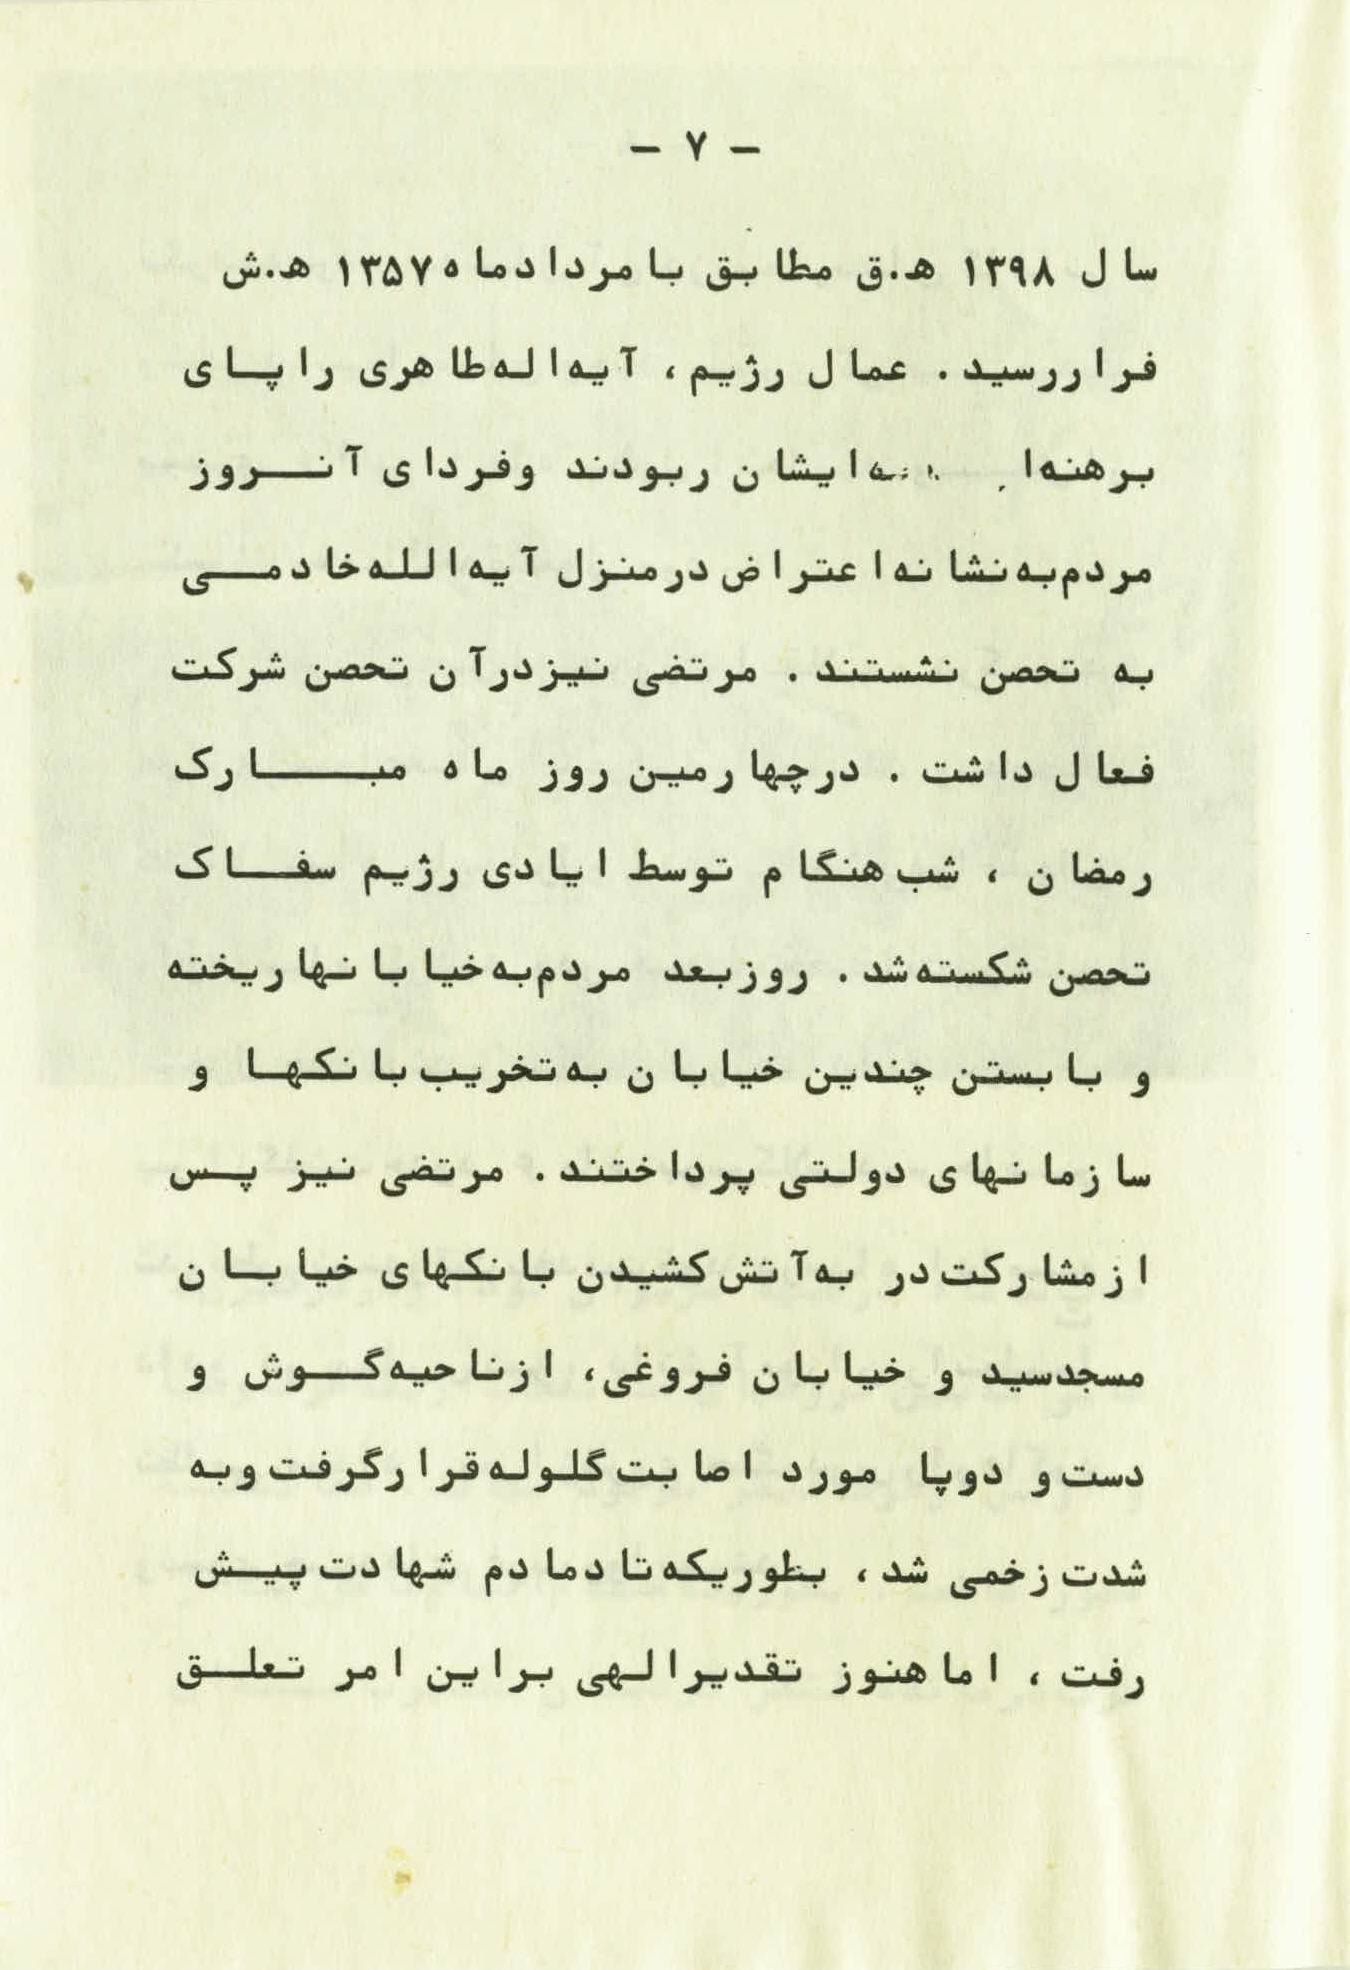 - ۷ -
سال ۱۳۹۸ ه.ق مطابق با مردادماه ۱۳۵۷ ه.ش
فراررسید. عمال رژیم، آیه‌اله‌طاهری راپای
برهنه‌ا ایشان ربودند وفردای آنروز
مردم‌به‌نشانه‌اعتراض درمنزل آیه‌الله‌خادمی
به تحصن نشستند. مرتضی نیزدرآن تحصن شرکت
فعال داشت. درچهارمین روز ماه مبارک
رمضان، شب‌هنگام توسط ایادی رژیم سفاک
تحصن شکسته‌شد. روزبعد مردم‌به‌خیابانهاریخته
و بابستن چندین خیابان به‌تخریب‌بانکها و
سازمانهای دولتی پرداختند. مرتضی نیز پس
ازمشارکت‌در به‌آتش‌کشیدن بانکهای خیابان
مسجدسید و خیابان فروغی، ازناحیه‌گوش و
دست‌و دوپا مورد اصابت‌گلوله‌قرارگرفت‌وبه
شدت‌زخمی شد، بطوریکه‌تا دمادم شهادت‌پیش
رفت، اماهنوز تقدیرالهی براین امر تعلق